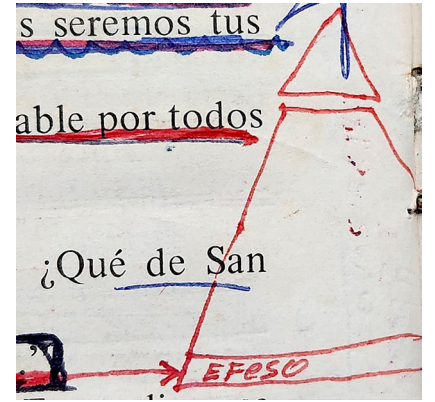 s seremos tus
able por todos
¿Qué de San
EFeSO